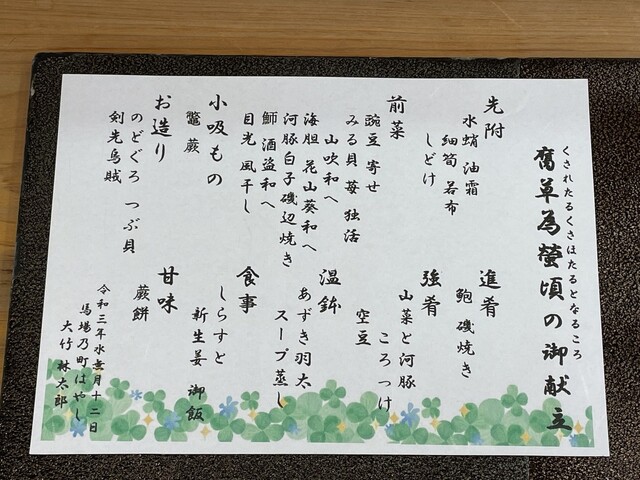 くされたるくさほたるとなるころ
腐草為螢頃の御献立
先附
水蛸 油霜
細筍 若布
しどけ
前菜
豌豆 寄せ
みる貝 苺 独活
山吹和へ
海胆 花山葵和へ
河豚白子 磯辺焼き
鰤 酒盗和へ
目光 風干し
小吸もの
鼈 蕨
お造り
のどぐろ つぶ貝
剣先烏賊
進肴
鮑 磯焼き
強肴
山菜と河豚
ころっけ
空豆
温鉢
あずき羽太
スープ蒸し
食事
しらすと
新生姜 御飯
甘味
蕨餅
令和三年水無月十二日
馬場乃町はやし
大竹 林太郎